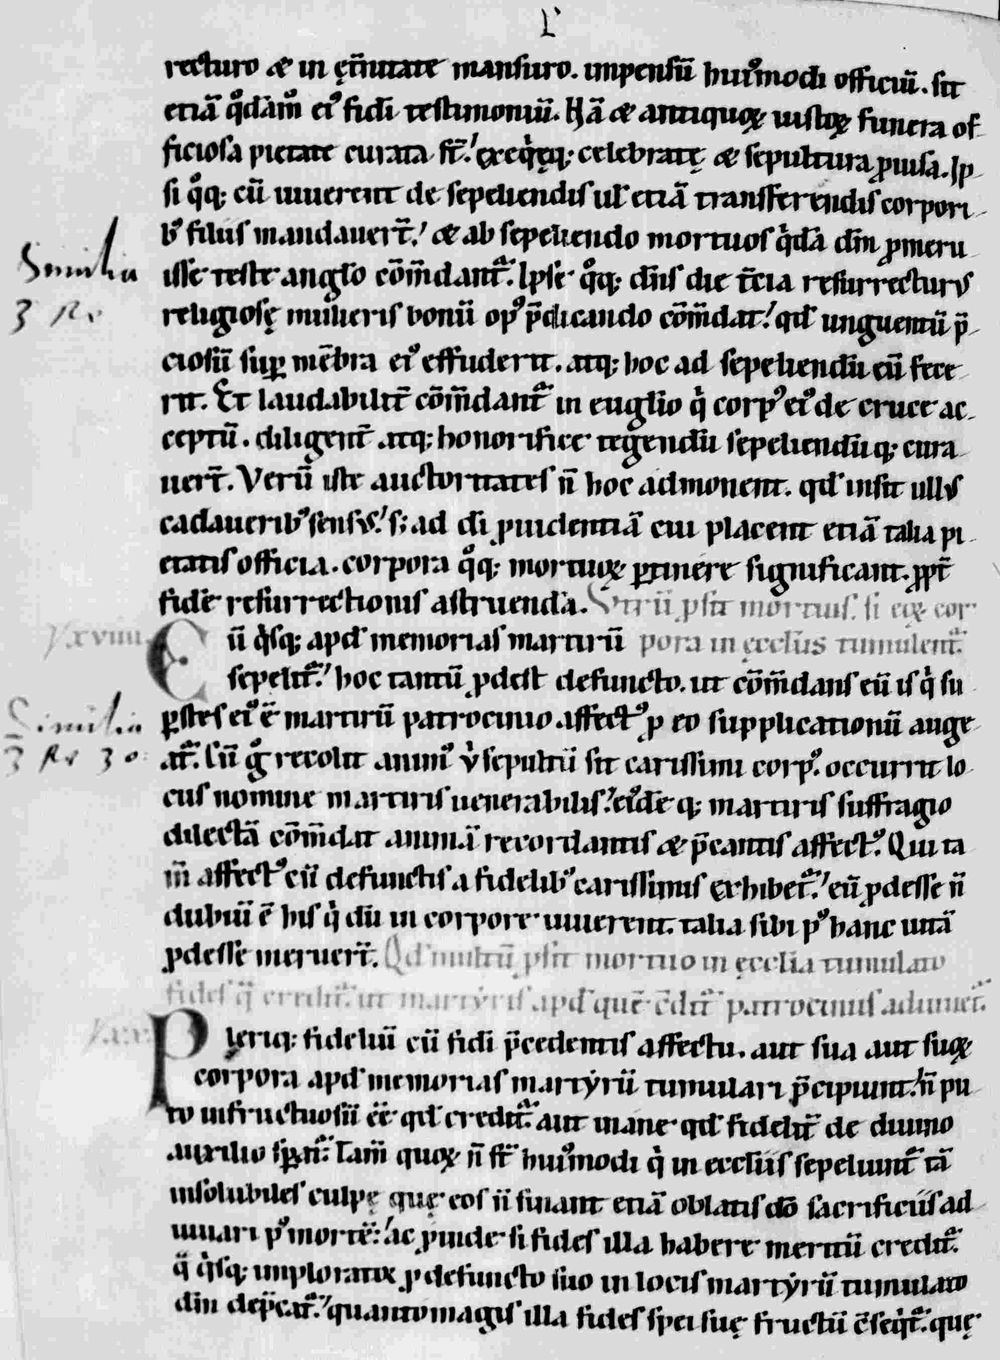 L
recturo & in ęt̄nitate mansuro. impensū huiꝰmodi officiū. sit
etiā q̊dāmͦ eiꝰ fidi testimoniū. Hā & antiquoꝝ iustoꝝ funera of
ficiosa pietate curata st̄.' exeq̇ęq; celebratę & sepultura ꝓuisa. Ip
si q̊q; cū uiuerent de sepeliendis ul̄ etiā transferendis corpori
bꝰ filiis mandauert̄.' & ab sepeliendo mortuos q̇dā dn̄m ꝓmeru
Similia
isse teste anglo cōm̄dant᷑. Ipse q̊q; dn̄s die t̄cia resurrecturꝰ
3 R.
religiosę mulieris bonū opꝰ p̄dicando cōm̄dat.' qd̄ unguentū p̄
ciosū suꝑ mēbra eiꝰ effuderit. atq; hoc ad sepeliendū eū fece
rit. Et laudabilit̄ cōm̄dant᷑ in euglio q̇ corpꝰ eiꝰ de cruce ac
ceptū. diligent̄ atq; honorifice tegendū sepeliendūq; cura
uert̄. Verū iste auctoritates n̄ hoc admonent. qd̄ insit ullꝰ
cadaueribꝰ sensꝰ.' s; ad di ꝓuidentiā cui placent etiā talia pi
etatis officia. corpora q̊q; mortuoꝝ ꝑtinere significant. ꝓpt̄
fidē resurrectionis astruendā. Utrū ꝓsit mortuis. si eoꝝ cor
xxviiii
Cū q̇sq; apd̄ memorias martirū pora in ęccl̄iis tumulent᷑.
sepelit᷑.' hoc tantū ꝓdest defuncto. ut cōm̄dans eū is q̇ su
Similia
ꝑstes eiꝰ ē martirū patrocinio. affectꝰ ꝓ eo supplicationū auge
3 R. 30
at᷑. Cū g̊ recolit animꝰ u̇ sepultū sit carissimi corpꝰ. occurrit lo
cus nomine martiris uenerabilis.' eidē q; martiris suffragio
dilectā cōm̄dat animā recordantis & p̄cantis affectꝰ. Qui ta
m̄ affectꝰ cū defunctis a fidelibꝰ carissimis exhibet᷑.' eū ꝓdesse n̄
dubiū ē his q̇ dū in corpore uiuerent. talia sibi pꝰ hanc uitā
ꝓdesse meruert̄. Qd̄ multū ꝓsit mortuo in ęcclia tumulato
fides q̄ credit᷑ ut martyris apd̄ quē c̄dit᷑ patrociniis adiuuet᷑.
xxx
Pleriq; fideliū cū fidi p̄cedentis affectu. aut sua aut suoꝝ
corpora apd̄ memorias martyrū tumulari p̄cipiunt.' n̄ pu
to infructuosū ee̅ qd̄ credit᷑. aut inane qd̄ fidelit̄ de diuino
auxilio sꝑat᷑. Tam̄ quoꝝ n̄ st̄ huiꝰmodi q̇ in eccl̄iis sepeliunt᷑ tā
insolubiles culpę quę eos n̄ sinant etiā oblatis dō sacrificiis ad
iuuari pꝰ mortē.' ac ꝓinde si fides illa habere meritū credit᷑.
q̄ q̇sq; imploratix ꝓ defuncto suo in locis martyrū tumulato
dn̄m dep̄cat᷑.' quanto magis illa fides spei suę fructū c̄seq̇t᷑. quę